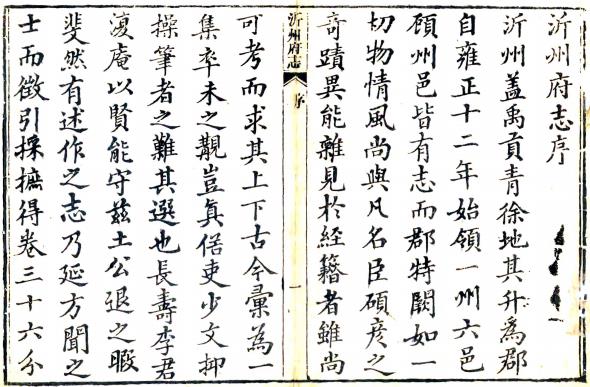 沂州府志序
沂州蓋禹貢青徐地其升爲郡
自雍正十二年始領一州六邑
顧州邑皆有志而郡特闕如一
切物情風尚與凡名臣碩彦之
竒蹟異能雜見於經籍者雖尚
沂州府志 序 一
可考而求其上下古今彙為一
集卒未之覯豈真俗吏少文抑
操筆者之難其選也長壽李君
澓庵以賢能守茲土公退之暇
斐然有述作之志乃延方聞之
士而徵引採摭得卷三十六分